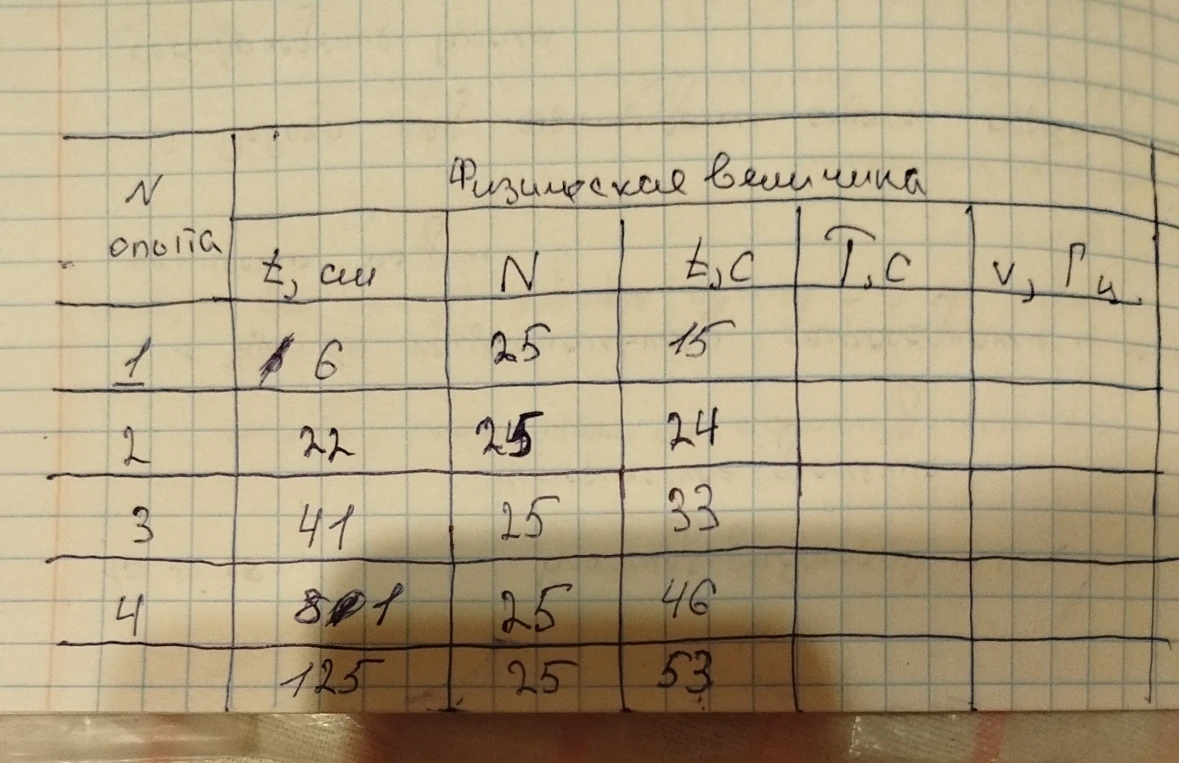 Физическая величина
N
опыта
t, см N t, с T, с v, Гц
1 6 25 15
2 22 25 24
3 41 25 33
4 81 25 46
125 25 53